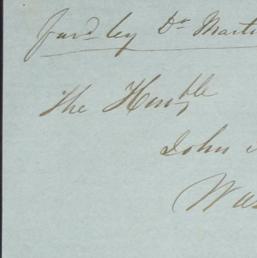 Furd by Dr Marti
The Honble
John
Was